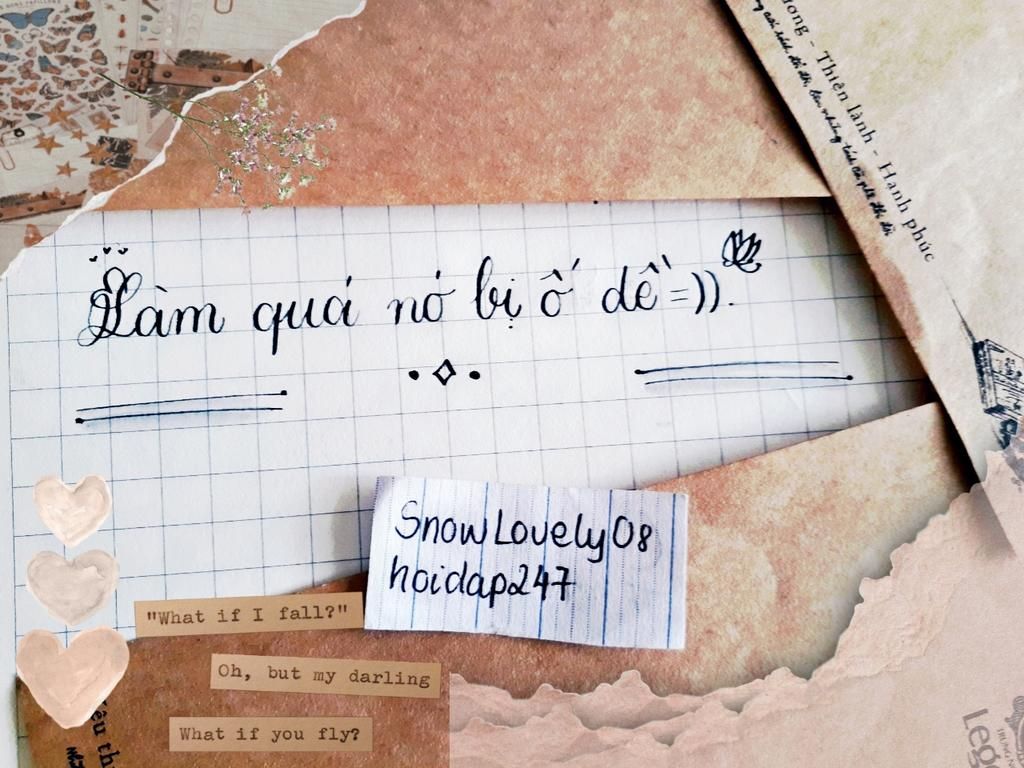 ương - Thiên lành - Hạnh phúc
Làm quá nó bị ố dề =)).
SnowLovely08
hoidap247
"What if I fall?"
Oh, but my darling
What if you fly?